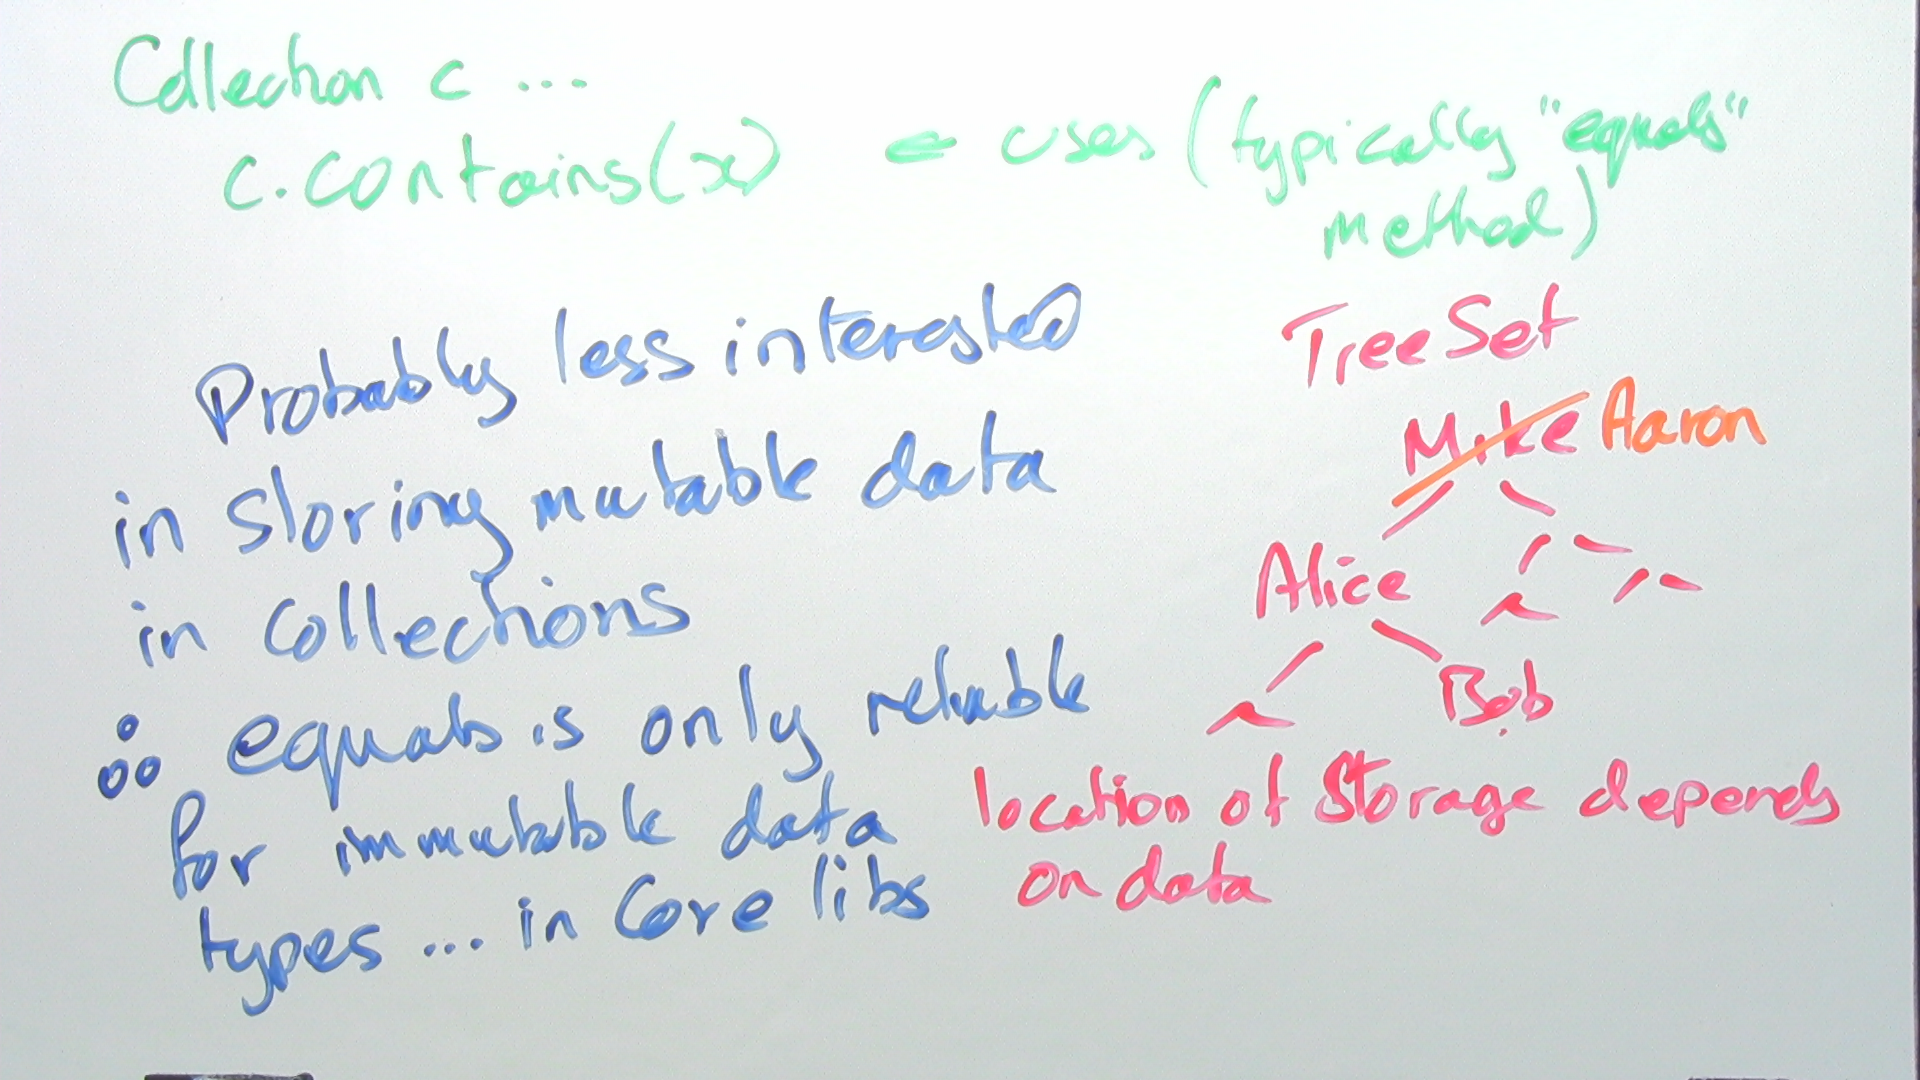 Collection c ...
c.contains(x) ⇐ uses (typically "equals"
method)
Probably less interested
in storing mutable data
in collections
∴ equals is only reliable
for immutable data
types ... in Core libs
TreeSet
Mike Aaron
Alice
Bob
location of Storage depends
on data